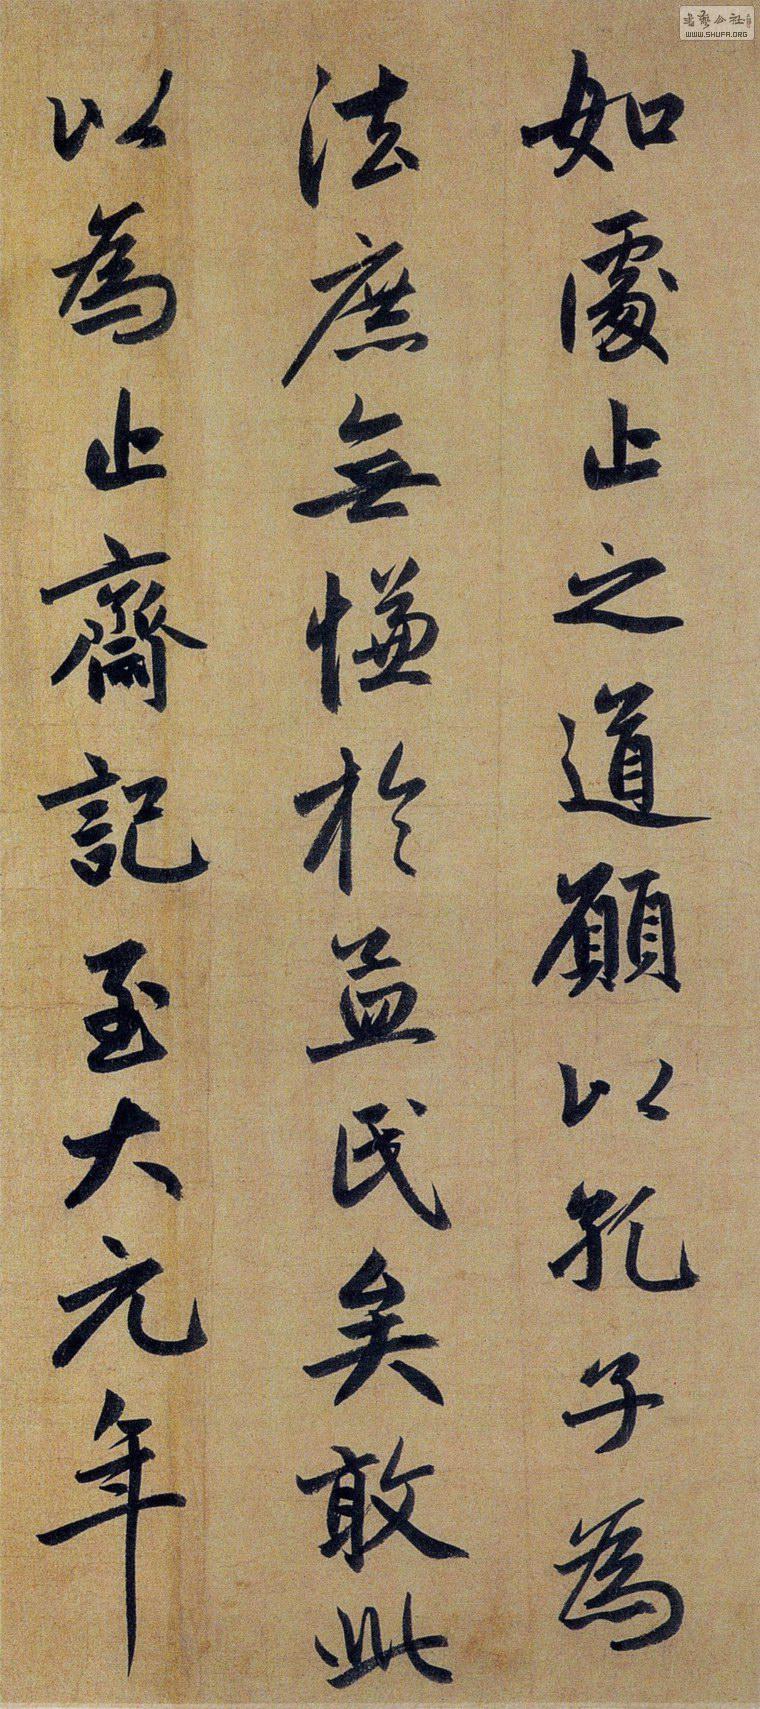 如處止之道願以孔子為
法庶無慊於益民矣敢此
以為止齋記至大元年
書藝公社
WWW.SHUFA.ORG